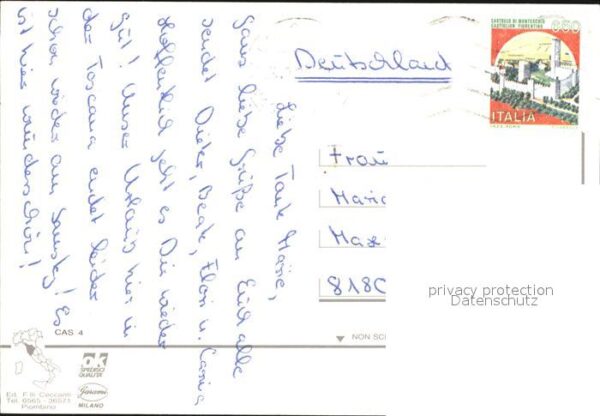 Liebe Tante Marie,
ganz liebe Grüße an Euch alle
sendet Dieter, Beate, Flori u. Carina
Hoffentlich geht es Dir wieder
gut! Unser Urlaub hier in
der Toscana endet leider
schon wieder am Samstag! Es
ist hier wunderschön!
Deutschland
CASTELLO DI MONTECCHIO
CASTIGLION FIORENTINO
650
ITALIA
Frau
Maria
818
privacy protection
Datenschutz
CAS 4
NON SC
OK
SPECIMEN
QUALITÀ
Garami
MILANO
Ed. F.lli Ceccanti
Tel. 0565 - 36571
Piombino